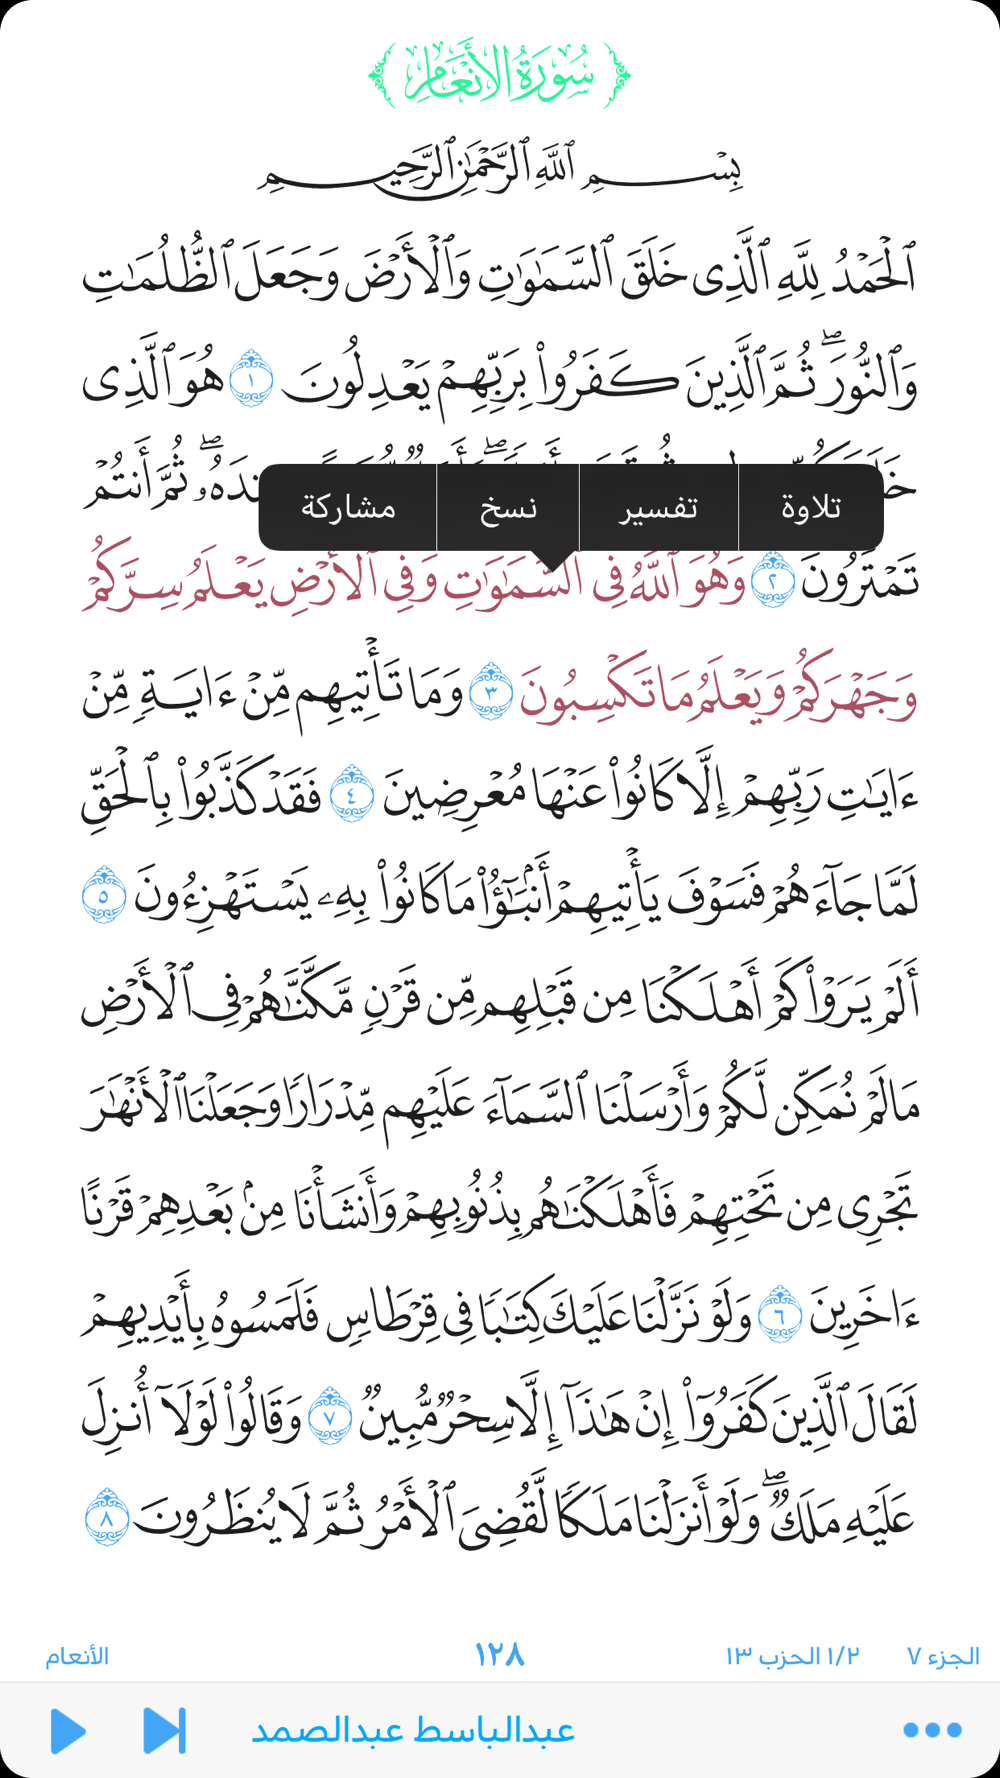 سُورَةُ الأَنْعَامِ
بِسْمِ ٱللَّهِ ٱلرَّحْمَٰنِ ٱلرَّحِيمِ
ٱلْحَمْدُ لِلَّهِ ٱلَّذِى خَلَقَ ٱلسَّمَٰوَٰتِ وَٱلْأَرْضَ وَجَعَلَ ٱلظُّلُمَٰتِ
وَٱلنُّورَ ۖ ثُمَّ ٱلَّذِينَ كَفَرُوا۟ بِرَبِّهِمْ يَعْدِلُونَ ١ هُوَ ٱلَّذِى
ثُمَّ أَنتُمْ
تلاوة تفسير نسخ مشاركة
تَمْتَرُونَ ٢ وَهُوَ ٱللَّهُ فِى ٱلسَّمَٰوَٰتِ وَفِى ٱلْأَرْضِ يَعْلَمُ سِرَّكُمْ
وَجَهْرَكُمْ وَيَعْلَمُ مَا تَكْسِبُونَ ٣ وَمَا تَأْتِيهِم مِّنْ ءَايَةٍ مِّنْ
ءَايَٰتِ رَبِّهِمْ إِلَّا كَانُوا۟ عَنْهَا مُعْرِضِينَ ٤ فَقَدْ كَذَّبُوا۟ بِٱلْحَقِّ
لَمَّا جَآءَهُمْ فَسَوْفَ يَأْتِيهِمْ أَنۢبَٰٓؤُا۟ مَا كَانُوا۟ بِهِۦ يَسْتَهْزِءُونَ ٥
أَلَمْ يَرَوْا۟ كَمْ أَهْلَكْنَا مِن قَبْلِهِم مِّن قَرْنٍ مَّكَّنَّٰهُمْ فِى ٱلْأَرْضِ
مَا لَمْ نُمَكِّن لَّكُمْ وَأَرْسَلْنَا ٱلسَّمَآءَ عَلَيْهِم مِّدْرَارًا وَجَعَلْنَا ٱلْأَنْهَٰرَ
تَجْرِى مِن تَحْتِهِمْ فَأَهْلَكْنَٰهُم بِذُنُوبِهِمْ وَأَنشَأْنَا مِنۢ بَعْدِهِمْ قَرْنًا
ءَاخَرِينَ ٦ وَلَوْ نَزَّلْنَا عَلَيْكَ كِتَٰبًا فِى قِرْطَاسٍ فَلَمَسُوهُ بِأَيْدِيهِمْ
لَقَالَ ٱلَّذِينَ كَفَرُوٓا۟ إِنْ هَٰذَآ إِلَّا سِحْرٌ مُّبِينٌ ٧ وَقَالُوا۟ لَوْلَآ أُنزِلَ
عَلَيْهِ مَلَكٌ ۖ وَلَوْ أَنزَلْنَا مَلَكًا لَّقُضِىَ ٱلْأَمْرُ ثُمَّ لَا يُنظَرُونَ ٨
الجزء ٧ ١/٢ الحزب ١٣ ١٢٨ الأنعام
عبدالباسط عبدالصمد